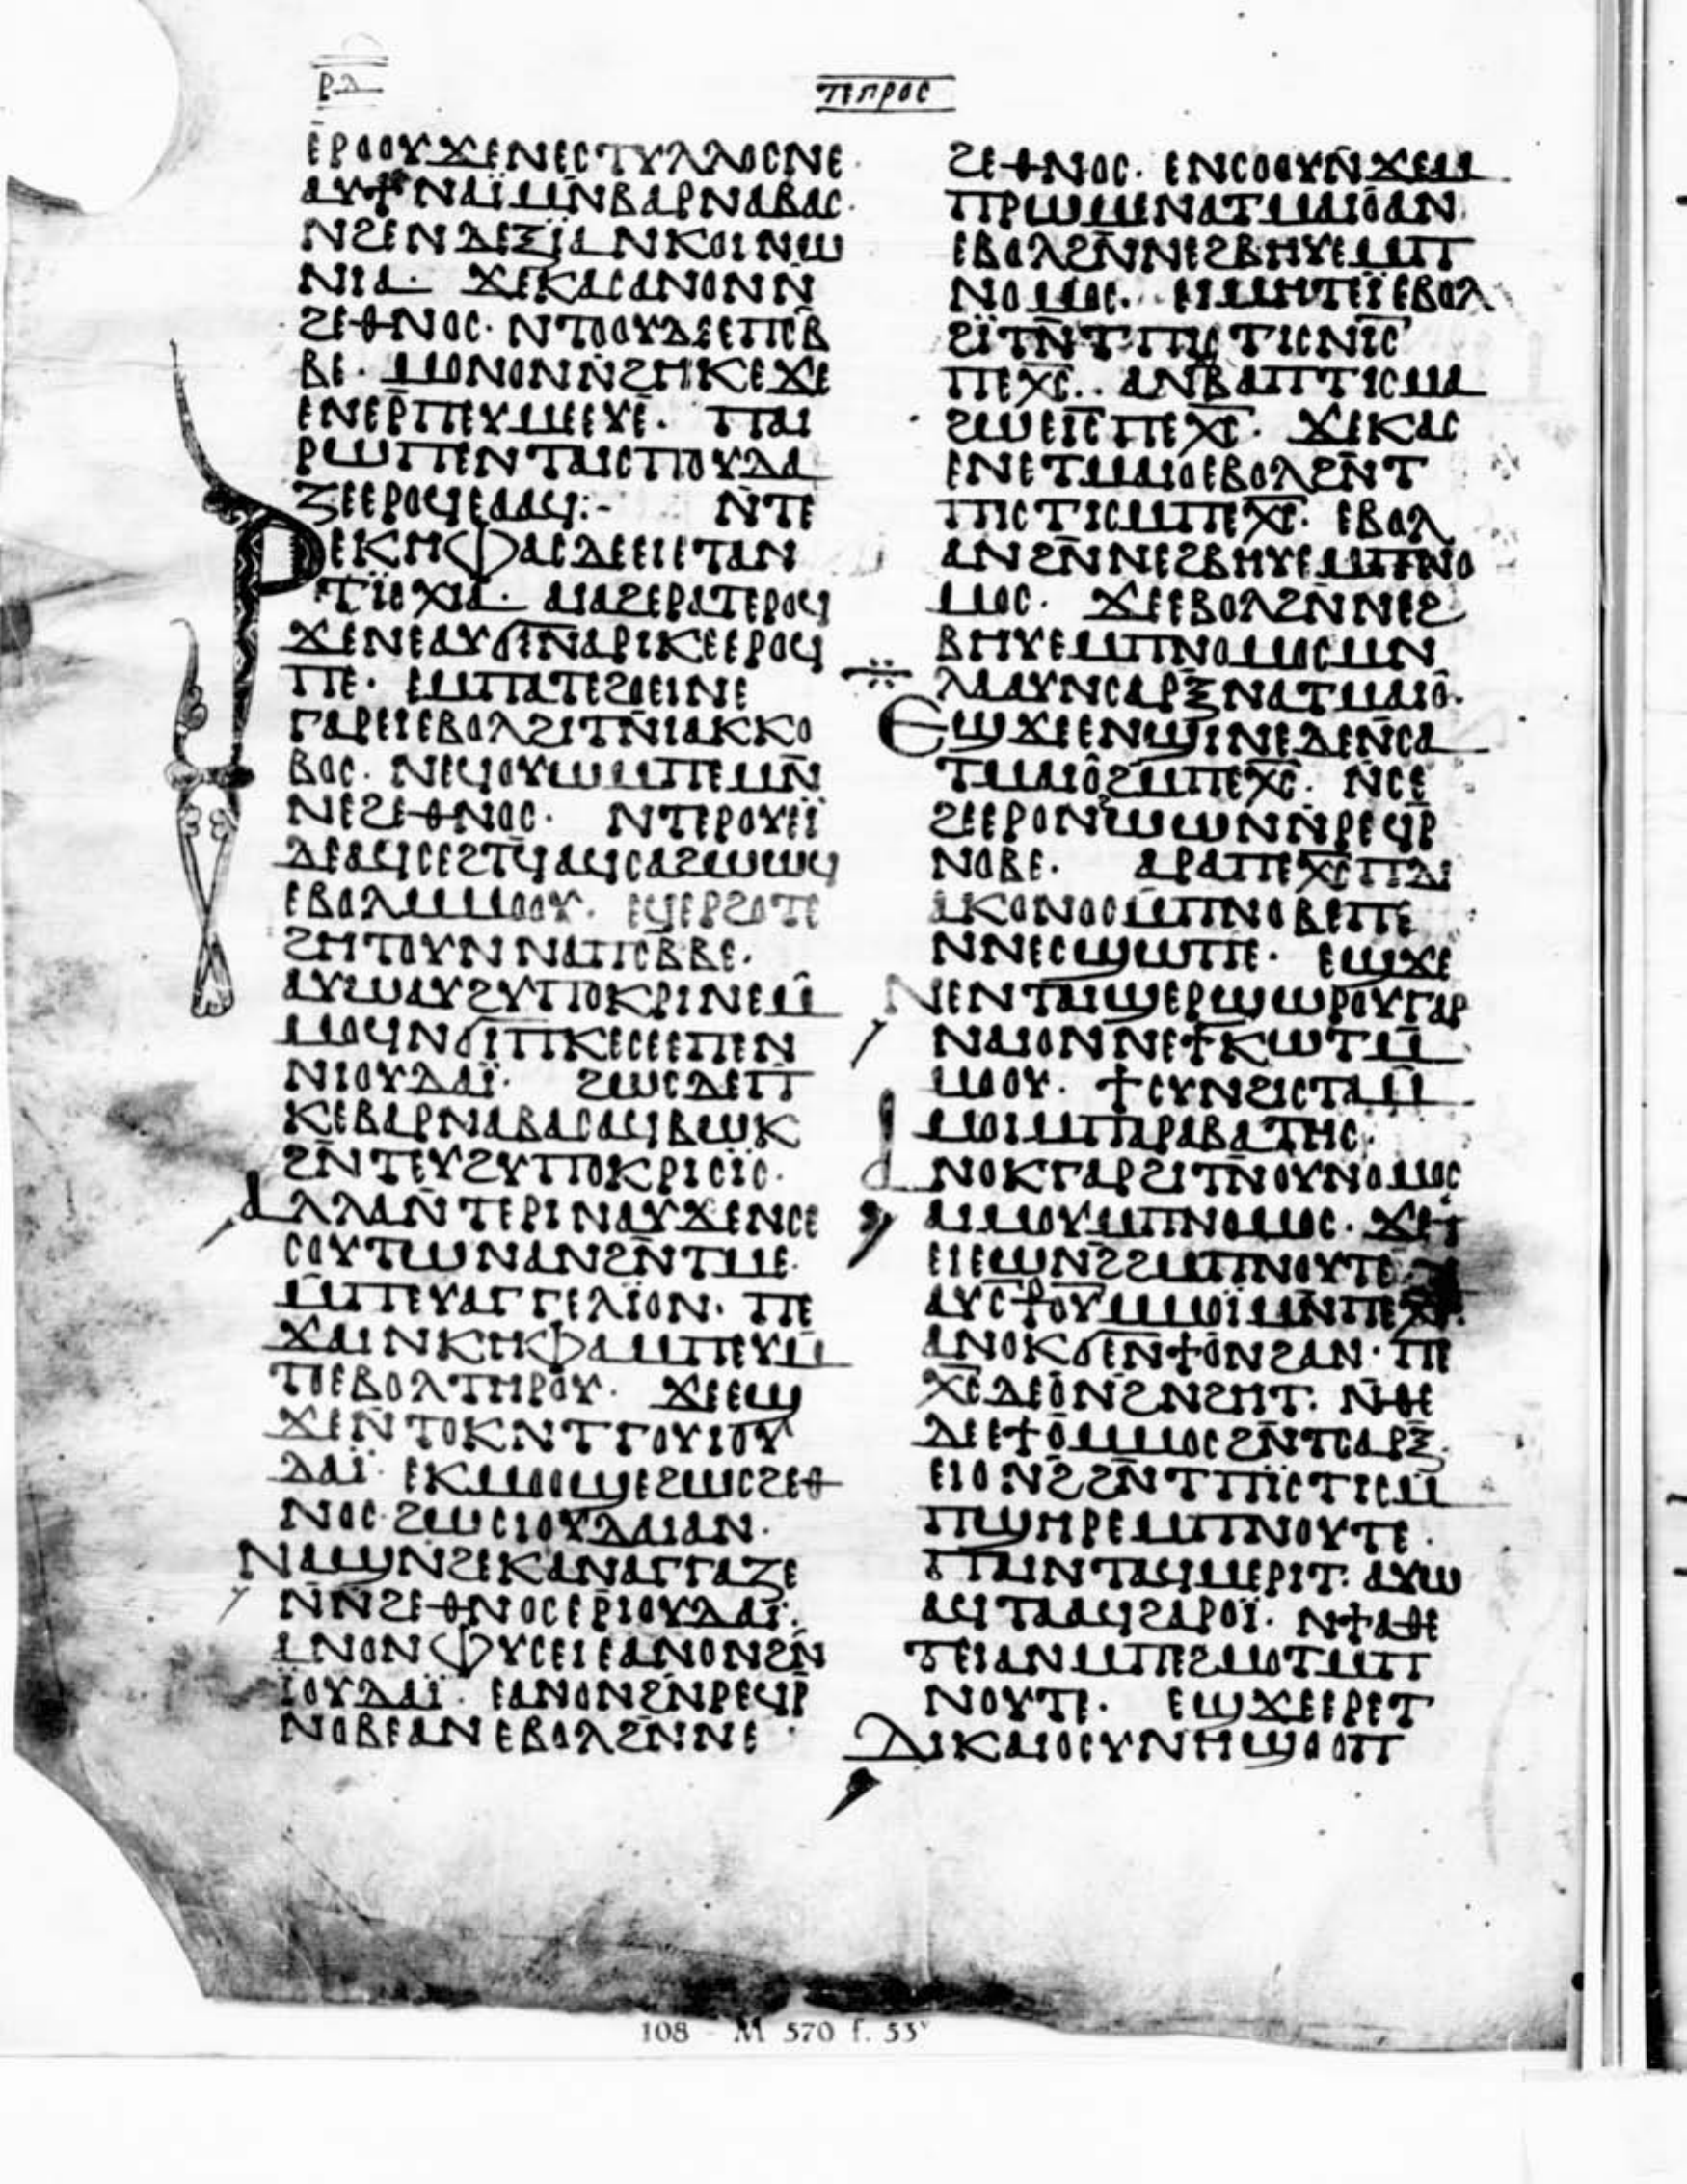 ⲣⲇ
ⲧⲉⲡⲣⲟⲥ
ⲉⲣⲟⲟⲩϫⲉⲛⲉⲥⲧⲩⲗⲗⲟⲥⲛⲉ·
ⲁⲩϯⲛⲁⲓ̈ⲙⲛ̄ⲃⲁⲣⲛⲁⲃⲁⲥ·
ⲛϩⲉⲛⲇⲉⲝⲓⲁⲛⲕⲟⲓⲛⲱ
ⲛⲓⲁ· ϫⲉⲕⲁⲥⲁⲛⲟⲛⲛ̄
ϩⲉⲑⲛⲟⲥ· ⲛⲧⲟⲟⲩⲇⲉⲉⲡⲥⲃ̄
ⲃⲉ· ⲙⲟⲛⲟⲛⲛ̄ϩⲏⲕⲉϫⲉ
ⲉⲛⲉⲣ̄ⲡⲉⲩⲙⲉⲉⲩⲉ· ⲡⲁⲓ
ⲣⲱⲡⲉⲛⲧⲁⲓⲥⲡⲟⲩⲇⲁ
ⲍⲉⲉⲣⲟϥⲉⲁⲁϥ:- ⲛ̄ⲧⲉ
ⲣⲉⲕⲏⲫⲁⲥⲇⲉⲉⲓⲉⲧⲁⲛ
ⲧⲓ̈ⲟⲭⲓⲁ· ⲁⲓⲁϩⲉⲣⲁⲧⲉⲣⲟϥ
ϫⲉⲛⲉⲁⲩϭⲛ̄ⲁⲣⲓⲕⲉⲉⲣⲟϥ
ⲡⲉ· ⲉⲙⲡⲁⲧⲉϩⲟⲉⲓⲛⲉ
ⲅⲁⲣⲉⲓⲉⲃⲟⲗϩⲓⲧⲛ̄ⲓⲁⲕⲕⲟ
ⲃⲟⲥ· ⲛⲉϥⲟⲩⲱⲙⲡⲉⲙⲛ̄
ⲛⲉϩⲉⲑⲛⲟⲥ· ⲛⲧⲉⲣⲟⲩⲉⲓ̈
ⲇⲉⲁϥⲥⲉϩⲧϥⲁϥⲥⲁϩⲱⲱϥ
ⲉⲃⲟⲗⲙⲙⲟⲟⲩ· ⲉϥⲉⲣϩⲟⲧⲉ
ϩⲏⲧⲟⲩⲛⲛⲁⲡⲥⲃⲃⲉ·
ⲁⲩⲱⲁⲩϩⲩⲡⲟⲕⲣⲓⲛⲉⲙ̄
ⲙⲟϥⲛϭⲓⲡⲕⲉⲥⲉⲉⲡⲉⲛ
ⲛⲓⲟⲩⲇⲁⲓ̈· ϩⲱⲥⲇⲉⲡ
ⲕⲉⲃⲁⲣⲛⲁⲃⲁⲥⲁϥⲃⲱⲕ
ϩⲛ̄ⲧⲉⲩϩⲩⲡⲟⲕⲣⲓⲥⲓ̈ⲥ·
ⲁⲗⲗⲁⲛ̄ⲧⲉⲣⲓⲛⲁⲩϫⲉⲛⲥⲉ
ⲥⲟⲩⲧⲱⲛⲁⲛϩⲛ̄ⲧⲙⲉ·
ⲙ̄ⲡⲉⲩⲁⲅⲅⲉⲗⲓ̈ⲟⲛ· ⲡⲉ
ϫⲁⲓⲛⲕⲏⲫⲁⲙⲡⲉⲩⲙ̄
ⲧⲟⲉⲃⲟⲗⲧⲏⲣⲟⲩ· ϫⲉⲉϣ
ϫⲉⲛ̄ⲧⲟⲕⲛⲧⲅⲟⲩⲓⲟⲩ
ⲇⲁⲓ̈· ⲉⲕⲙⲟⲟϣⲉϩⲱⲥϩⲉⲑ
ⲛⲟⲥ·ϩⲱⲥⲓⲟⲩⲇⲁⲓⲁⲛ·
ⲛⲁϣⲛϩⲉⲕⲁⲛⲁⲅⲅⲁⲍⲉ
ⲛⲛ̄ϩⲉⲑⲛⲟⲥⲉⲣ̄ⲓⲟⲩⲇⲁⲓ̈·
ⲁⲛⲟⲛⲫⲩⲥⲉⲓⲉⲁⲛⲟⲛϩⲛ̄
ⲓ̈ⲟⲩⲇⲁⲓ̈· ⲉⲁⲛⲟⲛϩⲛ̄ⲣⲉϥⲣ̄
ⲛⲟⲃⲉⲁⲛⲉⲃⲟⲗϩⲛ̄ⲛⲉ
ϩⲉⲑⲛⲟⲥ· ⲉⲛⲥⲟⲟⲩⲛ̄ϫⲉⲙ
ⲡⲣⲱⲙⲉⲛⲁⲧⲙⲁⲓⲟⲁⲛ
ⲉⲃⲟⲗϩⲛ̄ⲛⲉϩⲃⲏⲩⲉⲙⲡ
ⲛⲟⲙⲟⲥ· ⲉⲓⲙⲏⲧⲉⲓ̈ⲉⲃⲟⲗ
ϩⲓ̈ⲧⲛ̄ⲧⲡⲓⲥⲧⲓⲥⲛⲓ̄ⲥ̄
ⲡⲉⲭ̄ⲥ̄·· ⲁⲛⲃⲁⲡⲧⲓⲥⲙⲁ
ϩⲱⲉⲓ̄ⲥ̄ⲡⲉⲭ̄ⲥ̄· ϫⲉⲕⲁⲥ
ⲉⲛⲉⲧⲙⲁⲓⲟⲉⲃⲟⲗϩⲛ̄ⲧ
ⲡⲓⲥⲧⲓⲥⲙⲡⲉⲭ̄ⲥ̄· ⲉⲃⲟⲗ
ⲁⲛϩⲛ̄ⲛⲉϩⲃⲏⲩⲉⲙⲡⲛⲟ
ⲙⲟⲥ· ϫⲉⲉⲃⲟⲗϩⲛ̄ⲛⲉϩ
ⲃⲏⲩⲉⲙⲡⲛⲟⲙⲟⲥⲙⲛ
ⲗⲁⲁⲩⲛⲥⲁⲣⲝⲛⲁⲧⲙⲁⲓⲟ·
ⲉϣϫⲉⲉⲛϣⲓⲛⲉⲇⲉⲛ̄ⲥⲁ
ⲧⲙⲁⲓⲟϩⲙⲡⲉⲭ̄ⲥ̄· ⲛ̄ⲥⲉ
ϩⲉⲉⲣⲟⲛϩⲱⲱⲛⲛ̄ⲣⲉϥⲣ̄
ⲛⲟⲃⲉ· ⲁⲣⲁⲡⲉⲭ̄ⲥ̄ⲡⲇⲓ
ⲁⲕⲟⲛⲟⲥⲙ̄ⲡⲛⲟⲃⲉⲡⲉ
ⲛⲛⲉⲥϣⲱⲡⲉ· ⲉϣϫⲉ
ⲛⲉⲛⲧⲁⲓϣⲉⲣϣⲱⲣⲟⲩⲅⲁⲣ
ⲛⲁⲓⲟⲛⲛⲉϯⲕⲱⲧⲙ̄
ⲙⲟⲟⲩ· ϯⲥⲩⲛϩⲓⲥⲧⲁⲙ̄
ⲙⲟⲓⲙⲡⲁⲣⲁⲃⲁⲧⲏⲥ·
ⲁⲛⲟⲕⲅⲁⲣϩⲓⲧⲛ̄ⲟⲩⲛⲟⲙⲟⲥ
ⲁⲓⲙⲟⲩⲙⲡⲛⲟⲙⲟⲥ· ϫⲉ
ⲉⲓⲉⲱⲛϩϩⲙⲡⲛⲟⲩⲧⲉ
ⲁⲩⲥϯⲟⲩⲙⲙⲟⲓ̈ⲙⲛ̄ⲡⲉⲭ̄ⲥ̄·
ⲁⲛⲟⲕϭⲉⲛϯⲟⲛϩⲁⲛ· ⲡⲉ
ⲭ̄ⲥ̄ⲇⲉⲟⲛϩⲛϩⲏⲧ· ⲛ̄ⲑⲉ
ⲇⲉⲉϯⲟⲙⲙⲟⲥϩⲛ̄ⲧⲥⲁⲣⲝ·
ⲉⲓⲟⲛϩϩⲛ̄ⲧⲡⲓ̈ⲥⲧⲓⲥⲙ̄
ⲡϣⲏⲣⲉⲙⲡⲛⲟⲩⲧⲉ·
ⲡⲁⲓⲛⲧⲁϥⲙⲉⲣⲓⲧ· ⲁⲩⲱ
ⲁϥⲧⲁⲁϥϩⲁⲣⲟⲓ̈· ⲛϯⲁⲑⲉ
ⲧⲉⲓⲁⲛⲙⲡⲉϩⲙⲟⲧⲙⲡ
ⲛⲟⲩⲧⲉ· ⲉϣϫⲉⲉⲣⲉⲧ
ⲇⲓⲕⲁⲓⲟⲥⲩⲛⲏϣⲟⲟⲡ
108 - M 570 f. 53ᵛ